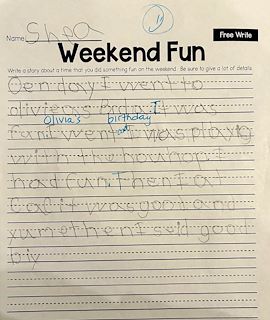 Name Shea
Free Write
Weekend Fun
Write a story about a time that you did something fun on the weekend. Be sure to give a lot of details.
Oen day I went to
oliveias Brday. I was
Olivia's birthday
fun. I went I was playing
with the
had fun. Then I at
it was good and
yum then I seid good
biy